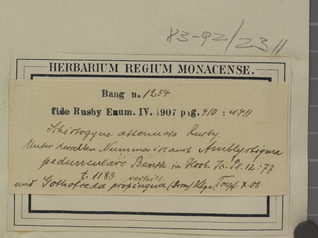 83-92/2311
HERBARIUM REGIUM MONACENSE.
Bang n. 1254
fide Rusby Enum. IV. 1907 pag. 410 : 411
Schistogyne attenuata Rusby.
Unter derselben Nummer ist auch Amblystigma
pedunculare Benth in Hook. Ic. Pl. 12. 77
t. 1188 verteilt.
und Gothofreda propinqua